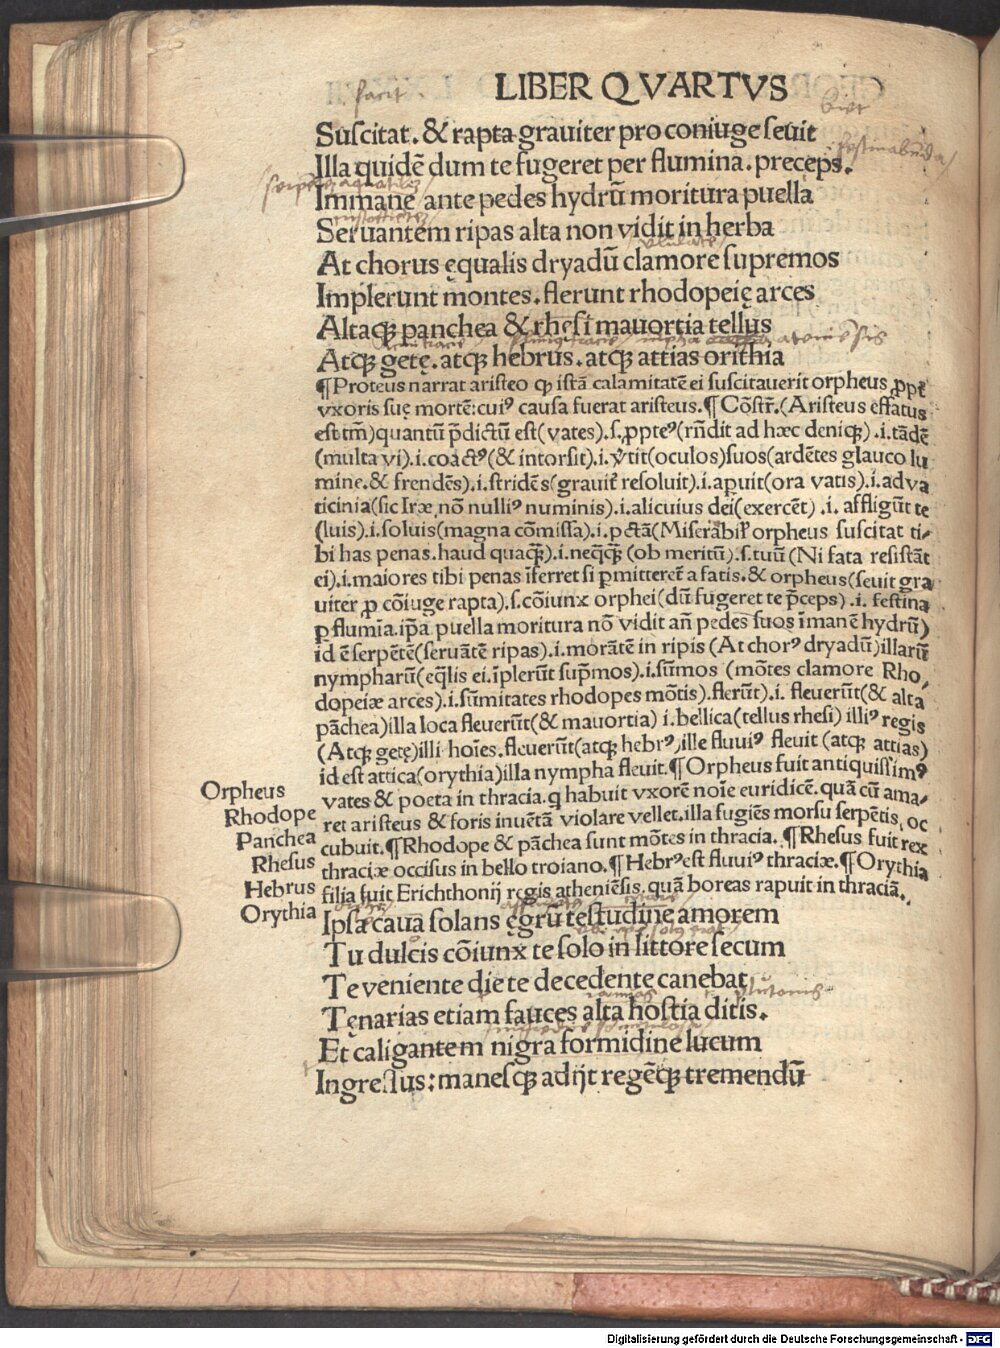 LIBER QVARTVS
Suscitat. & rapta grauiter pro coniuge seuit
Illa quidē dum te fugeret per flumina. preceps.
Immane ante pedes hydrū moritura puella
Seruantem ripas alta non vidit in herba
At chorus ęqualis dryadū clamore supremos
Implerunt montes. flerunt rhodopeię arces
Altaqꝫ panchea & rhesi mauortia tellus
Atqꝫ getę. atqꝫ hebrus. atqꝫ attias orithia
¶Proteus narrat aristeo qꝫ istā calamitatē ei suscitauerit orpheus ꝓpt̄
vxoris suę mortē: cuiꝰ causa fuerat aristeus. ¶Cōstr̄. (Aristeus effatus
est tm̄) quantū p̄dictū est (vates). s. ꝓpteꝰ (rn̄dit ad hæc deniqꝫ) .i. tādē
(multa vi) .i. coactꝰ (& intorsit) .i. v̓tit (oculos) suos (ardētes glauco lu
mine. & frendēs) .i. stridēs (grauit̄ resoluit) .i. apuit (ora vatis) .i. ad va
ticinia (sic Iræ, nō nulliꝰ numinis) .i. alicuius dei (exercēt) .i. affligūt te
(luis) .i. soluis (magna cōmissa) .i. pctā (Miserabil̓ orpheus suscitat ti-
bi has penas. haud quaqꝫ̄) .i. neqꝫqꝫ̄ (ob meritū) .s. tuū (Ni fata resistāt
ei) .i. maiores tibi penas īferret si ꝑmitteret̄ a fatis. & orpheus (seuit gra
uiter ꝓ cōiuge rapta). s. cōiunx orphei (dū fugeret te p̄ceps) .i. festina
ꝑ flumīa. ip̄a puella moritura nō vidit an̄ pedes suos īmanē hydrū)
id ē serpētē (seruātē ripas) .i. morātē in ripis (At chorꝰ dryadū) illarū
nympharū (eq̄lis ei. īplerūt sup̄mos) .i. sūmos (mōtes clamore Rho,
dopeiæ arces) .i. sūmitates rhodopes mōtis). flerūt) .i. fleuerūt (& alta
pāchea) illa loca fleuerūt (& mauortia) i. bellica (tellus rhesi) illiꝰ regis
(Atqꝫ getę) illi hoīes. fleuerūt (atqꝫ hebrꝰ, ille fluuiꝰ fleuit (atqꝫ attias)
id est attica (orythia) illa nympha fleuit. ¶Orpheus fuit antiquissimꝰ
vates & poeta in thracia. q̄ habuit vxorē noīe euridicē. quā cū ama-
ret aristeus & foris inuētā violare vellet. illa fugiēs morsu serpētis, oc
cubuit. ¶Rhodope & pāchea sunt mōtes in thracia. ¶Rhesus fuit rex
thraciæ occisus in bello troiano. ¶Hebrꝰ est fluuiꝰ thraciæ. ¶Orythia
filia fuit Erichthonij regis atheniēsis. quā boreas rapuit in thraciā.
Orpheus
Rhodope
Panchea
Rhesus
Hebrus
Orythia
Ipsa caua solans ęgrū testudine amorem
Tu dulcis cōiunx te solo in littore secum
Te veniente die te decedente canebat
Tęnarias etiam fauces alta hostia ditis.
Et caligantem nigra formidine lucum
Ingressus: manesqꝫ adijt regēqꝫ tremendū
Digitalisierung gefördert durch die Deutsche Forschungsgemeinschaft - DFG